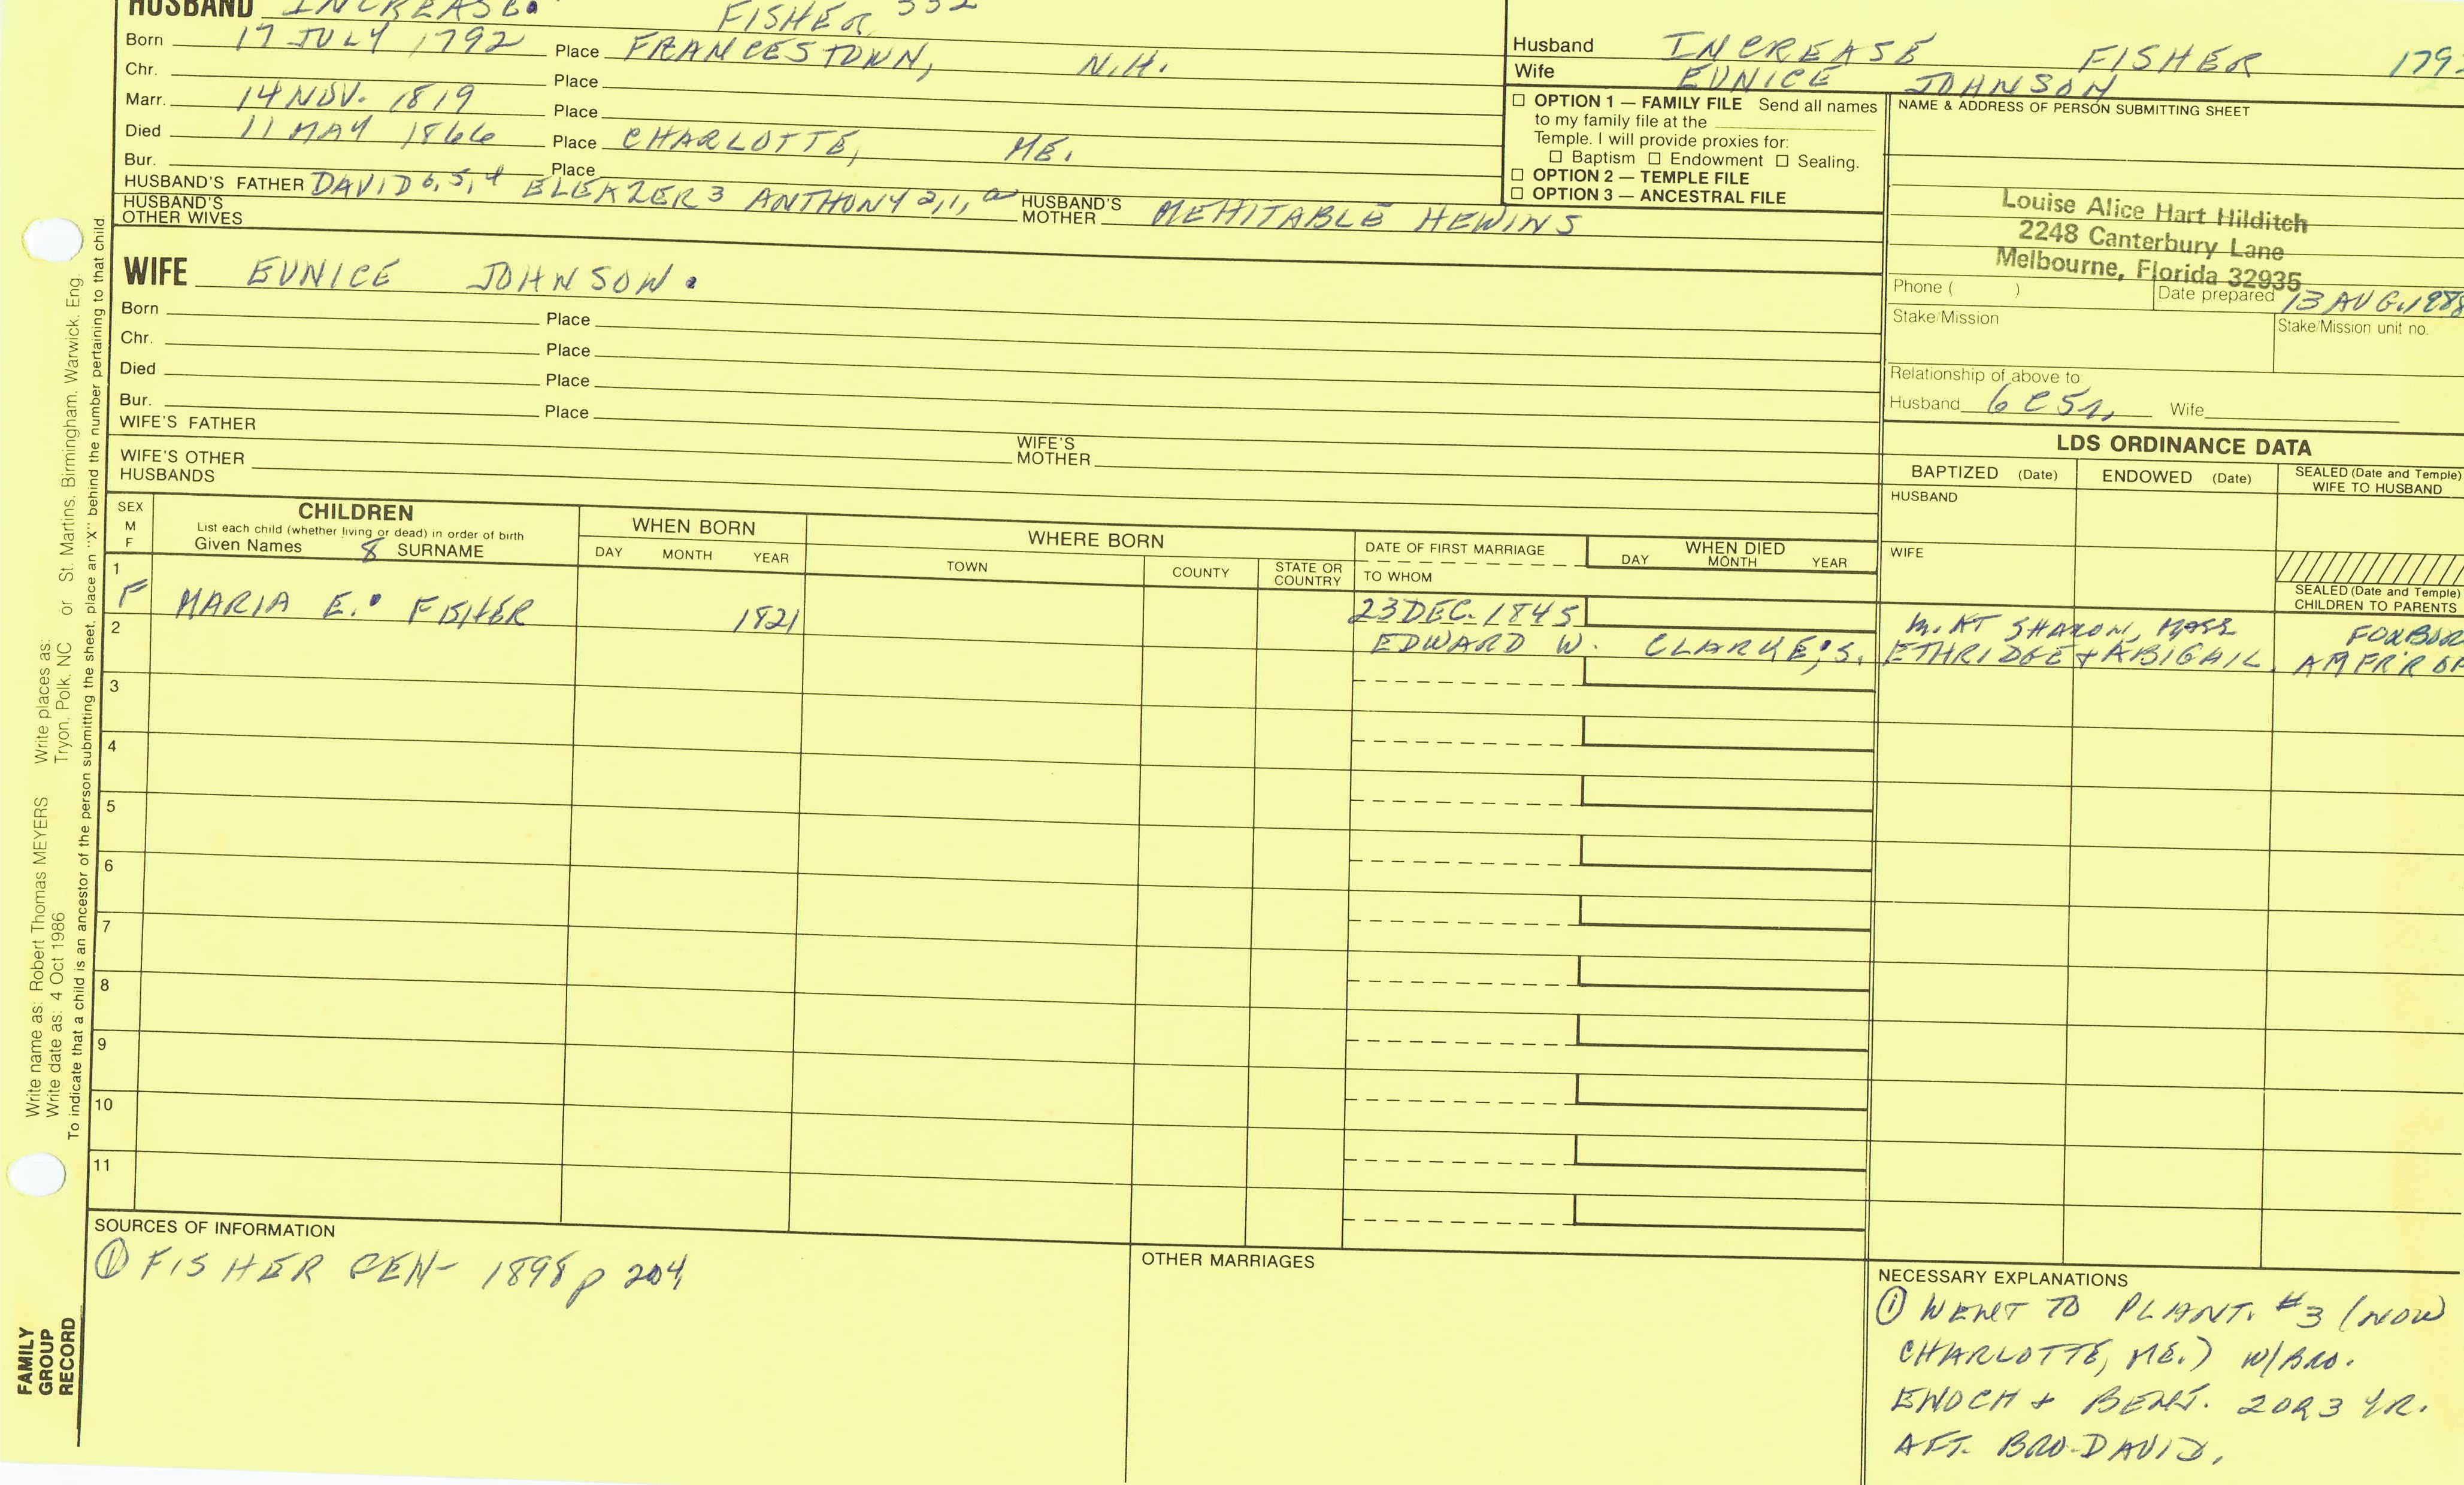 HUSBAND INCREASE. FISHER 552
Born 17 JULY 1792 Place FRANCESTOWN, N.H.
Chr. Place
Marr. 14 NOV. 1819 Place
Died 11 MAY 1866 Place CHARLOTTE, ME.
Bur. Place
HUSBAND'S FATHER DAVID 6,5,4 ELEAZER 3 ANTHONY 2,1, a HUSBAND'S MOTHER MEHITABLE HEWINS
HUSBAND'S OTHER WIVES
WIFE EUNICE JOHNSON.
Born Place
Chr. Place
Died Place
Bur. Place
WIFE'S FATHER
WIFE'S MOTHER
WIFE'S OTHER HUSBANDS
Husband INCREASE FISHER 179
Wife EUNICE JOHNSON
☐ OPTION 1 — FAMILY FILE Send all names
to my family file at the
Temple. I will provide proxies for:
☐ Baptism ☐ Endowment ☐ Sealing.
☐ OPTION 2 — TEMPLE FILE
☐ OPTION 3 — ANCESTRAL FILE
NAME & ADDRESS OF PERSON SUBMITTING SHEET
Louise Alice Hart Hilditch
2248 Canterbury Lane
Melbourne, Florida 32935
Phone ( ) Date prepared 13 AUG. 1988
Stake/Mission Stake/Mission unit no.
Relationship of above to
Husband 6C5r, Wife
LDS ORDINANCE DATA
BAPTIZED (Date) ENDOWED (Date) SEALED (Date and Temple)
WIFE TO HUSBAND
HUSBAND
WIFE
SEALED (Date and Temple)
CHILDREN TO PARENTS
SEX
M
F
CHILDREN
List each child (whether living or dead) in order of birth
Given Names 8 SURNAME
WHEN BORN
DAY MONTH YEAR
WHERE BORN
TOWN COUNTY STATE OR COUNTRY
DATE OF FIRST MARRIAGE
TO WHOM
WHEN DIED
DAY MONTH YEAR
1
F MARIA E. FISHER 1821 23 DEC. 1845 m. AT SHARON, MASS FOXBOR
EDWARD W. CLARKE; S. ETHRIDGE & ABIGAIL
2
3
4
5
6
7
8
9
10
11
SOURCES OF INFORMATION
① FISHER GEN- 1898 p 204
OTHER MARRIAGES
NECESSARY EXPLANATIONS
① WENT TO PLANT. #3 (NOW
CHARLOTTE, ME.) W/BRO.
ENOCH & BENJ. 2 OR 3 YR.
AFT. BRO-DAVID.
Write name as: Robert Thomas MEYERS Write places as:
Write date as: 4 Oct 1986 Tryon, Polk, NC or St. Martins, Birmingham, Warwick, Eng.
To indicate that a child is an ancestor of the person submitting the sheet, place an "X" behind the number pertaining to that child.
FAMILY
GROUP
RECORD